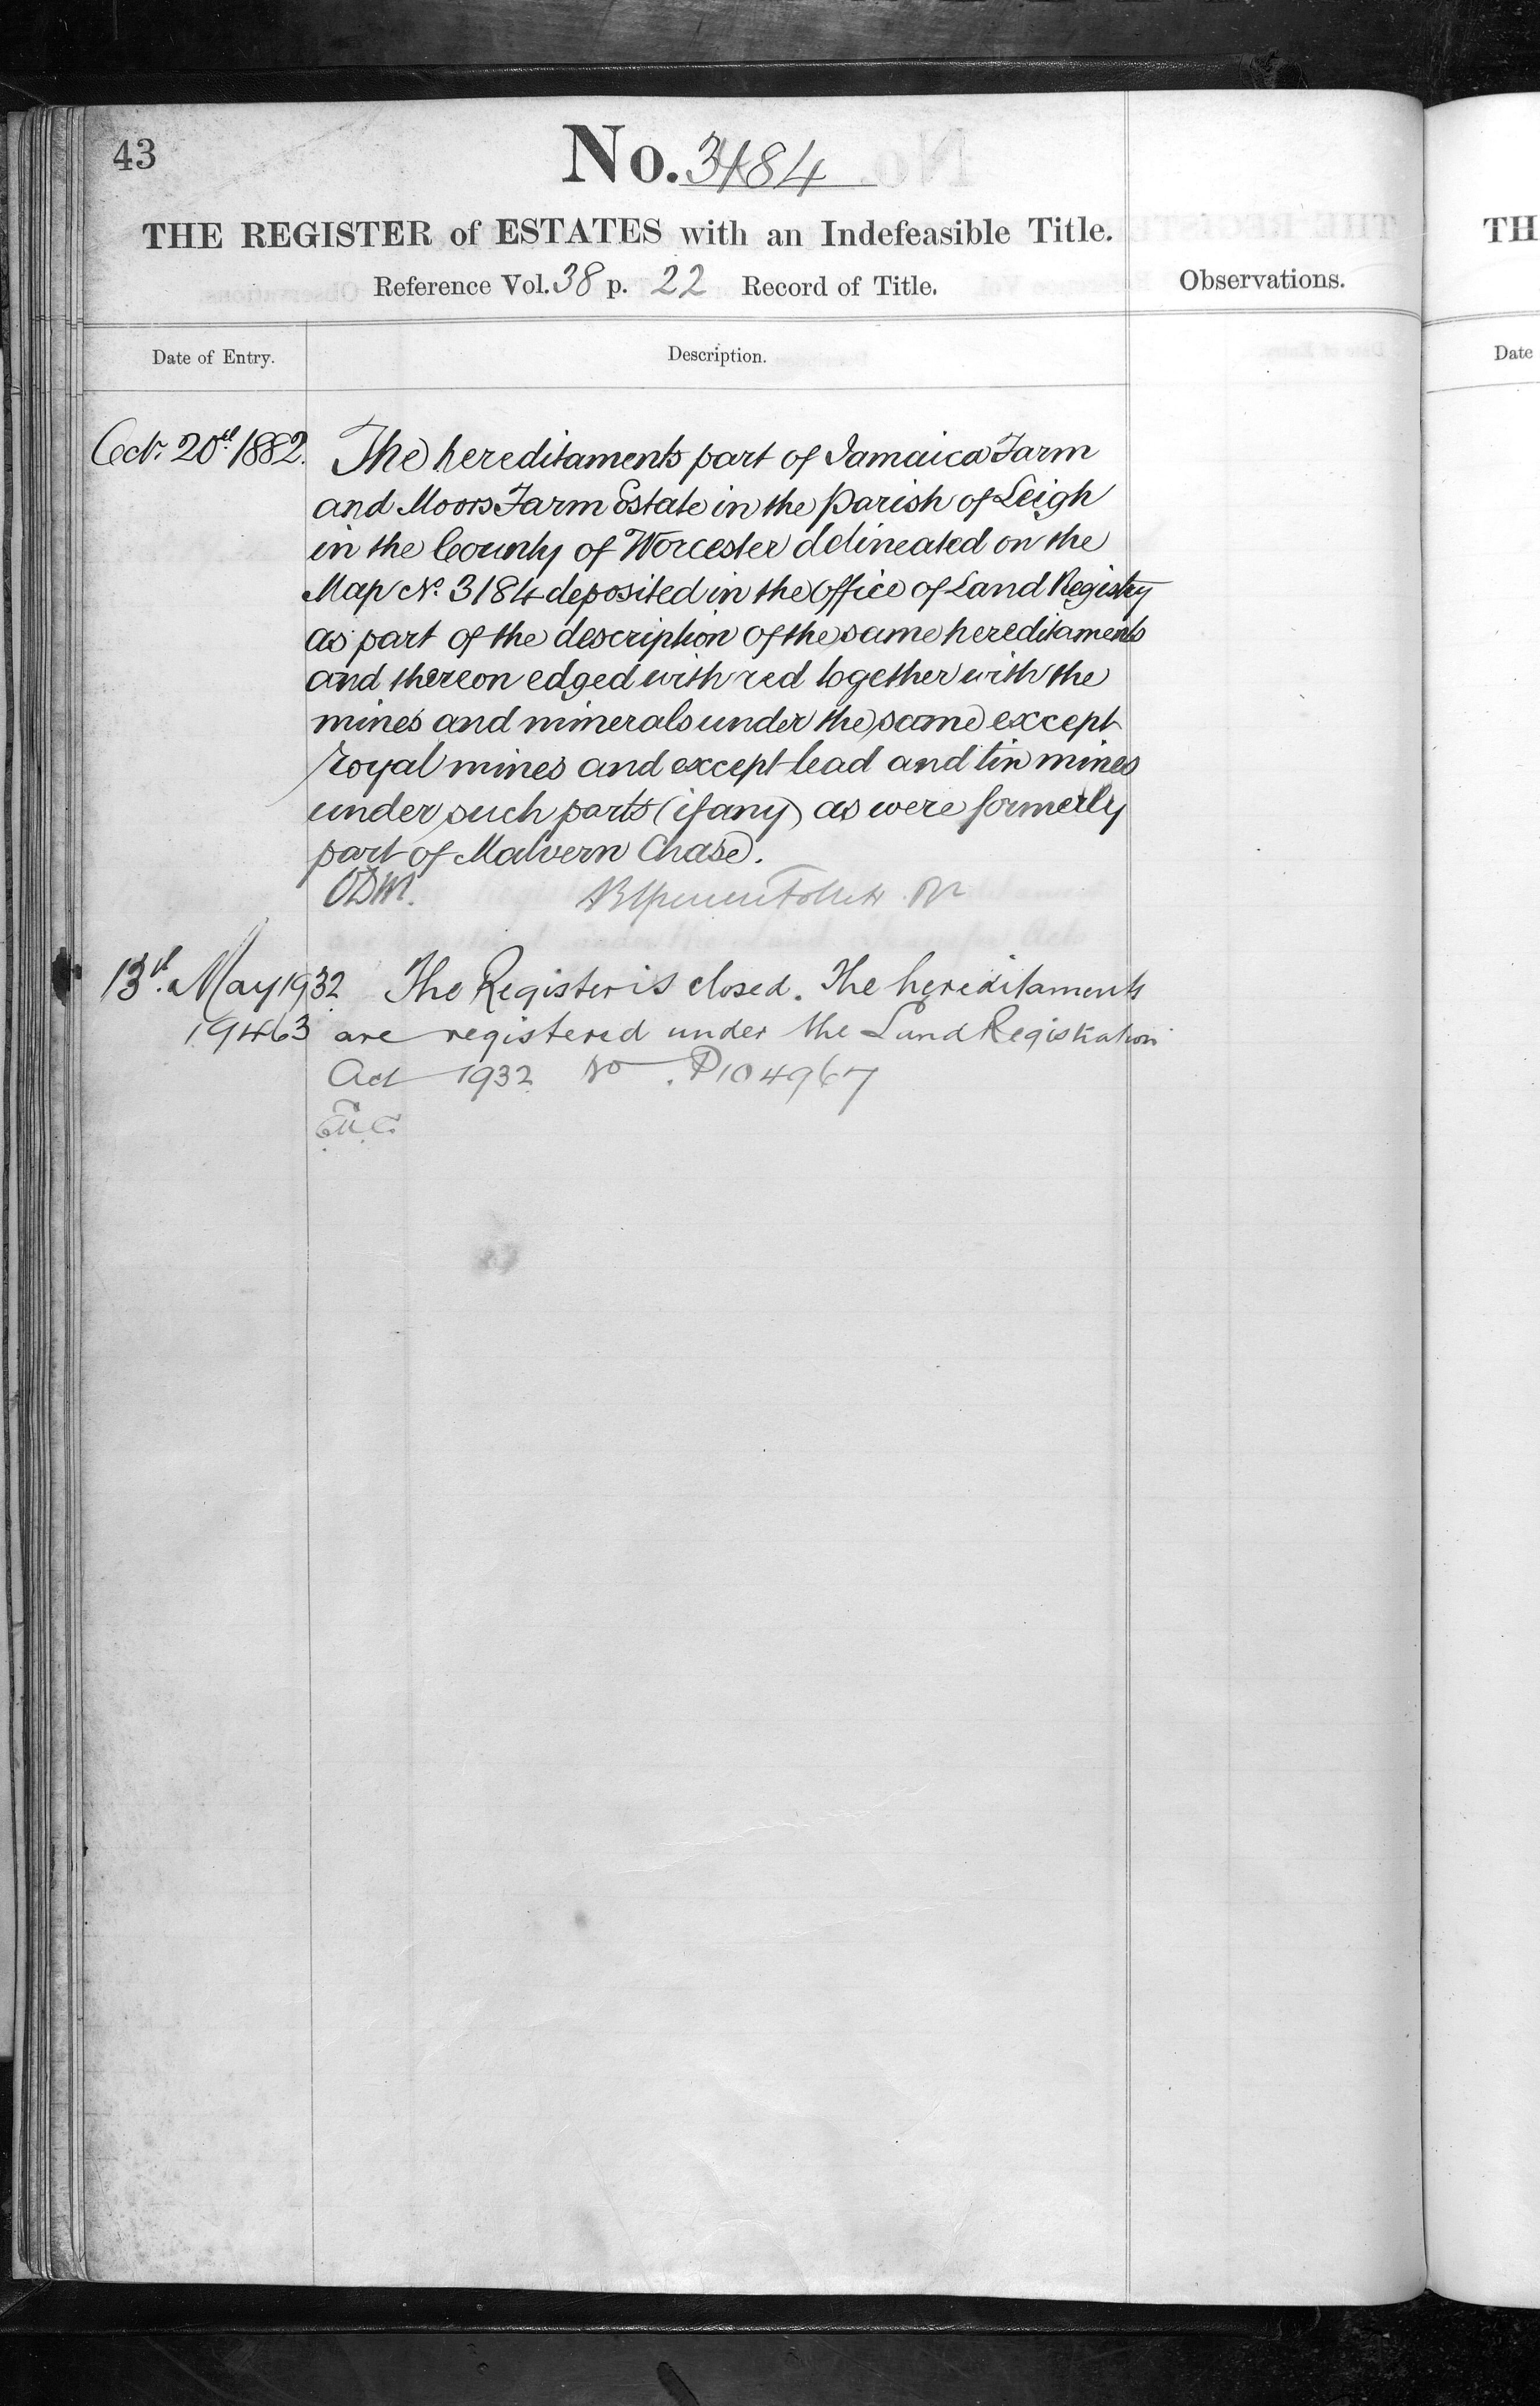 43
No. 3184
THE REGISTER of ESTATES with an Indefeasible Title.
Reference Vol. 38 p. 22 Record of Title.
Observations.
Date of Entry.
Description.
Oct. 20th 1882. The hereditaments part of Jamaica Farm
and Moors Farm Estate in the Parish of Leigh
in the County of Worcester delineated on the
Map No. 3184 deposited in the Office of Land Registry
as part of the description of the same hereditaments
and thereon edged with red together with the
mines and minerals under the same except
royal mines and except lead and tin mines
under such parts (if any) as were formerly
part of Malvern Chase.
13th May 1932 The Register is closed. The hereditaments
19463 are registered under the Land Registration
Act 1932 No. P104967
TH
Date